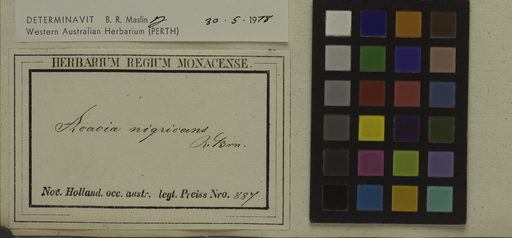 DETERMINAVIT B. R. Maslin 30·5·1978
Western Australian Herbarium (PERTH)
HERBARIUM REGIUM MONACENSE.
Acacia nigricans
R. Brn.
Nov. Holland. occ. austr. legt. Preiss Nro. 887